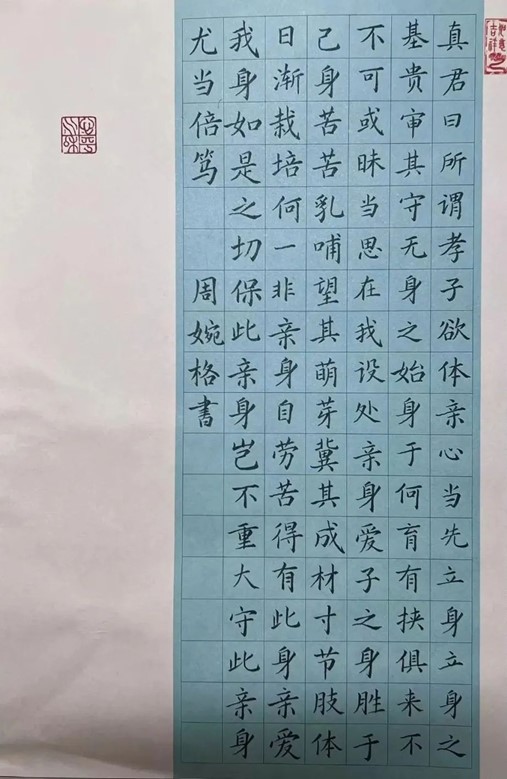 真君曰所谓孝子欲体亲心当先立身立身之
基贵审其守无身之始身于何育有挟俱来不
不可或昧当思在我设处亲身爱子之身胜于
己身苦苦乳哺望其萌芽冀其成材寸节肢体
日渐栽培何一非亲身自劳苦得有此身亲爱
我身如是之切保此亲身岂不重大守此亲身
尤当倍笃
周婉格書